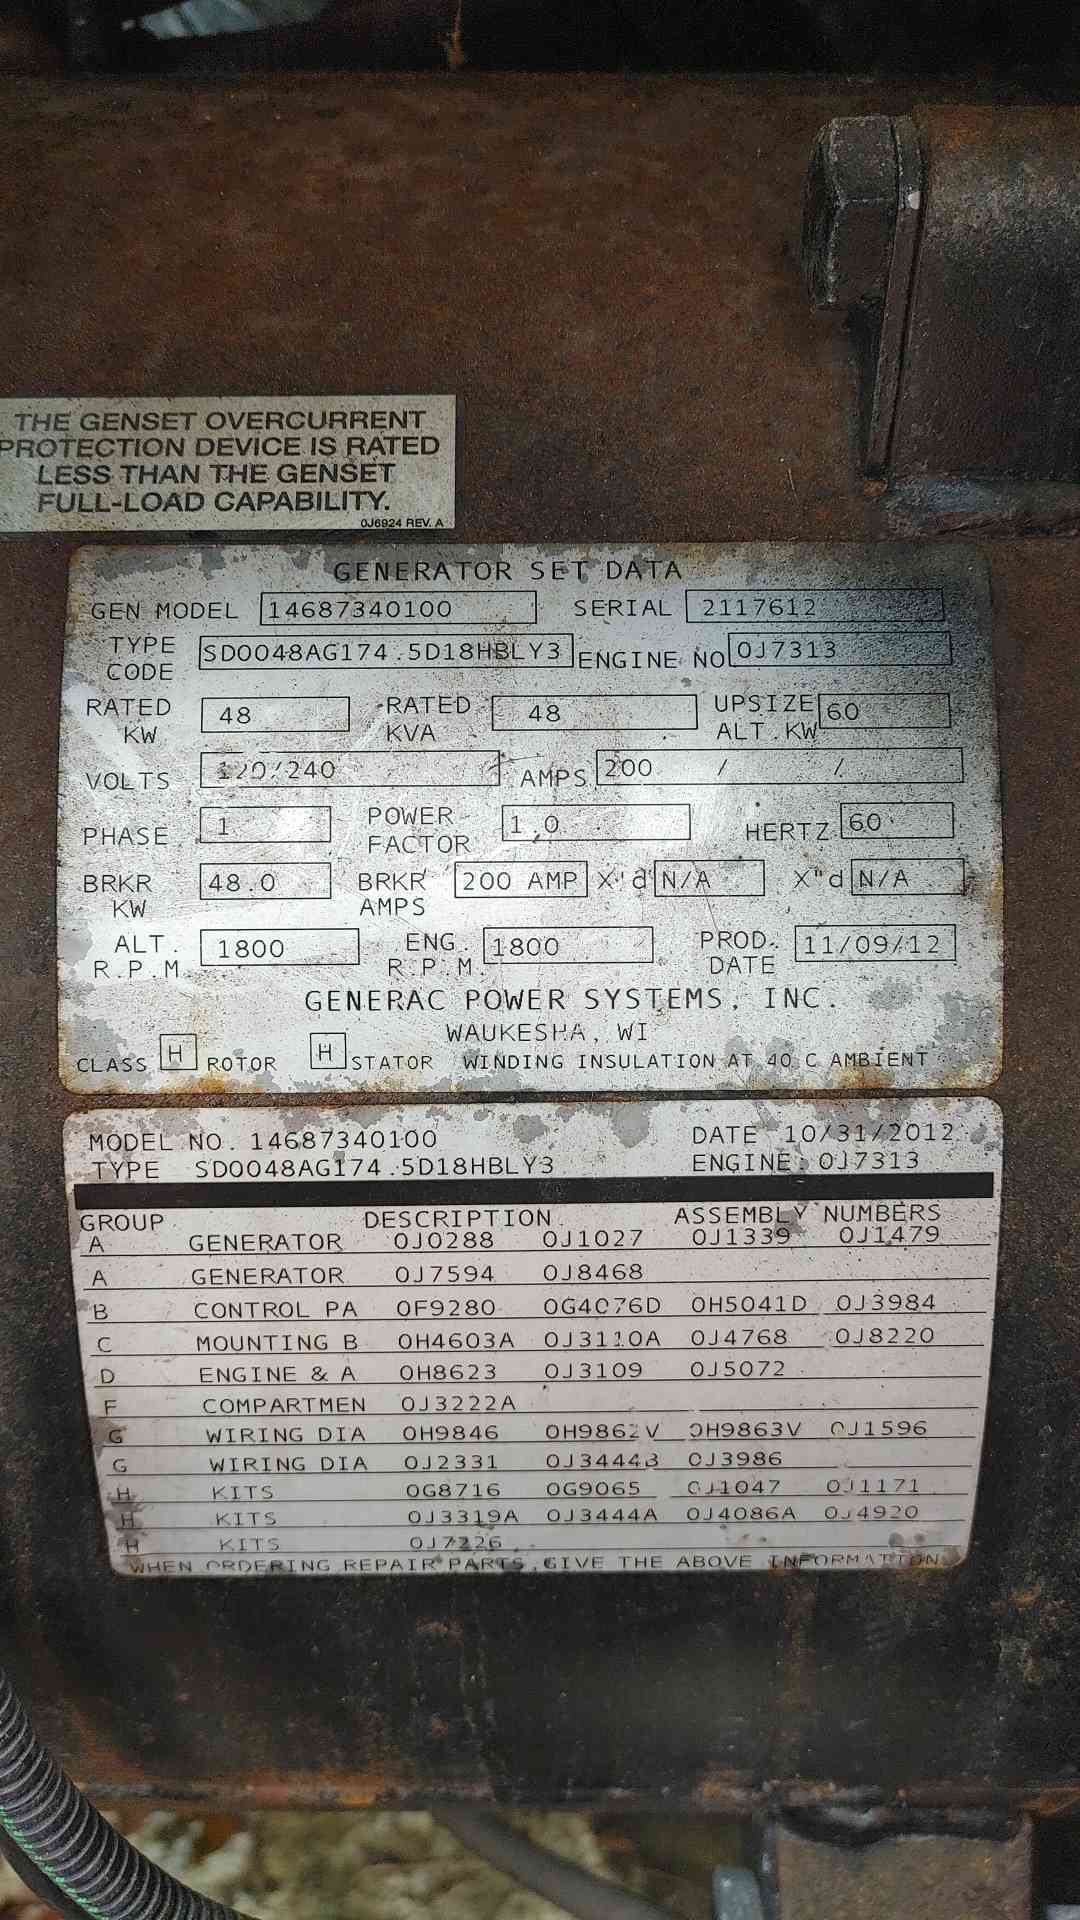 THE GENSET OVERCURRENT
PROTECTION DEVICE IS RATED
LESS THAN THE GENSET
FULL-LOAD CAPABILITY.
0J6924 REV. A
GENERATOR SET DATA
GEN MODEL 14687340100 SERIAL 2117612
TYPE CODE SD0048AG174.5D18HBLY3 ENGINE NO 0J7313
RATED KW 48 RATED KVA 48 UPSIZE ALT.KW 60
VOLTS 120/240 AMPS 200 / /
PHASE 1 POWER FACTOR 1.0 HERTZ 60
BRKR KW 48.0 BRKR AMPS 200 AMP X'd N/A X"d N/A
ALT. R.P.M. 1800 ENG. R.P.M. 1800 PROD. DATE 11/09/12
GENERAC POWER SYSTEMS, INC.
WAUKESHA, WI
CLASS H ROTOR H STATOR WINDING INSULATION AT 40 C AMBIENT
MODEL NO. 14687340100 DATE 10/31/2012
TYPE SD0048AG174.5D18HBLY3 ENGINE: 0J7313
GROUP DESCRIPTION ASSEMBLY NUMBERS
A GENERATOR 0J0288 0J1027 0J1339 0J1479
A GENERATOR 0J7594 0J8468
B CONTROL PA 0F9280 0G4076D 0H5041D 0J3984
C MOUNTING B 0H4603A 0J3110A 0J4768 0J8220
D ENGINE & A 0H8623 0J3109 0J5072
F COMPARTMEN 0J3222A
G WIRING DIA 0H9846 0H9862V 0H9863V 0J1596
G WIRING DIA 0J2331 0J3444B 0J3986
H KITS 0G8716 0G9065 0J1047 0J1171
H KITS 0J3319A 0J3444A 0J4086A 0J4920
H KITS 0J7226
WHEN ORDERING REPAIR PARTS,GIVE THE ABOVE INFORMATION